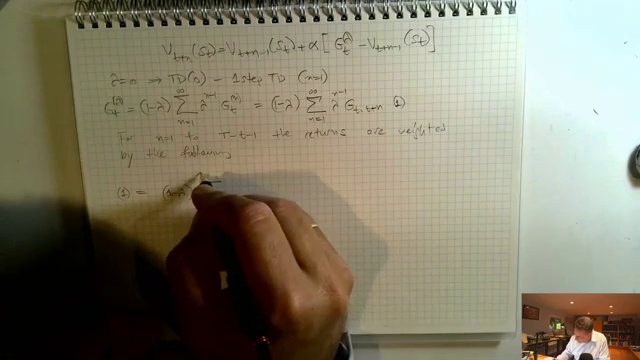 V_{t+n}(S_t) = V_{t+n-1}(S_t) + α [ G_t^{(λ)} - V_{t+n-1}(S_t) ]
λ=0 ⇒ TD(0) - 1 step TD (n=1)
G_t^{(λ)} = (1-λ) ∑_{n=1}^{∞} λ^{n-1} G_t^{(n)} = (1-λ) ∑_{n=1}^{∞} λ^{n-1} G_{t,t+n} (1)
For n=1 to T-t-1 the returns are weighted
by the following
(1) = (1-λ)